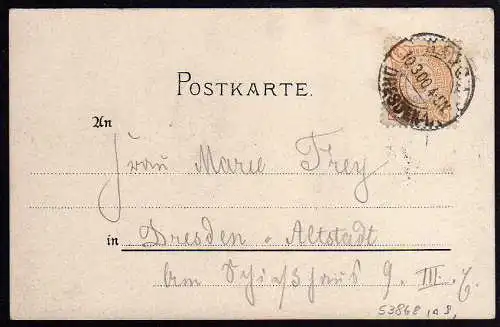 POSTKARTE.
HANSA
10.3.00.4-5N.
DRESDEN
An
Frau Marie Frey
in Dresden-Altstadt
Am Schießhaus 9. III.
53868